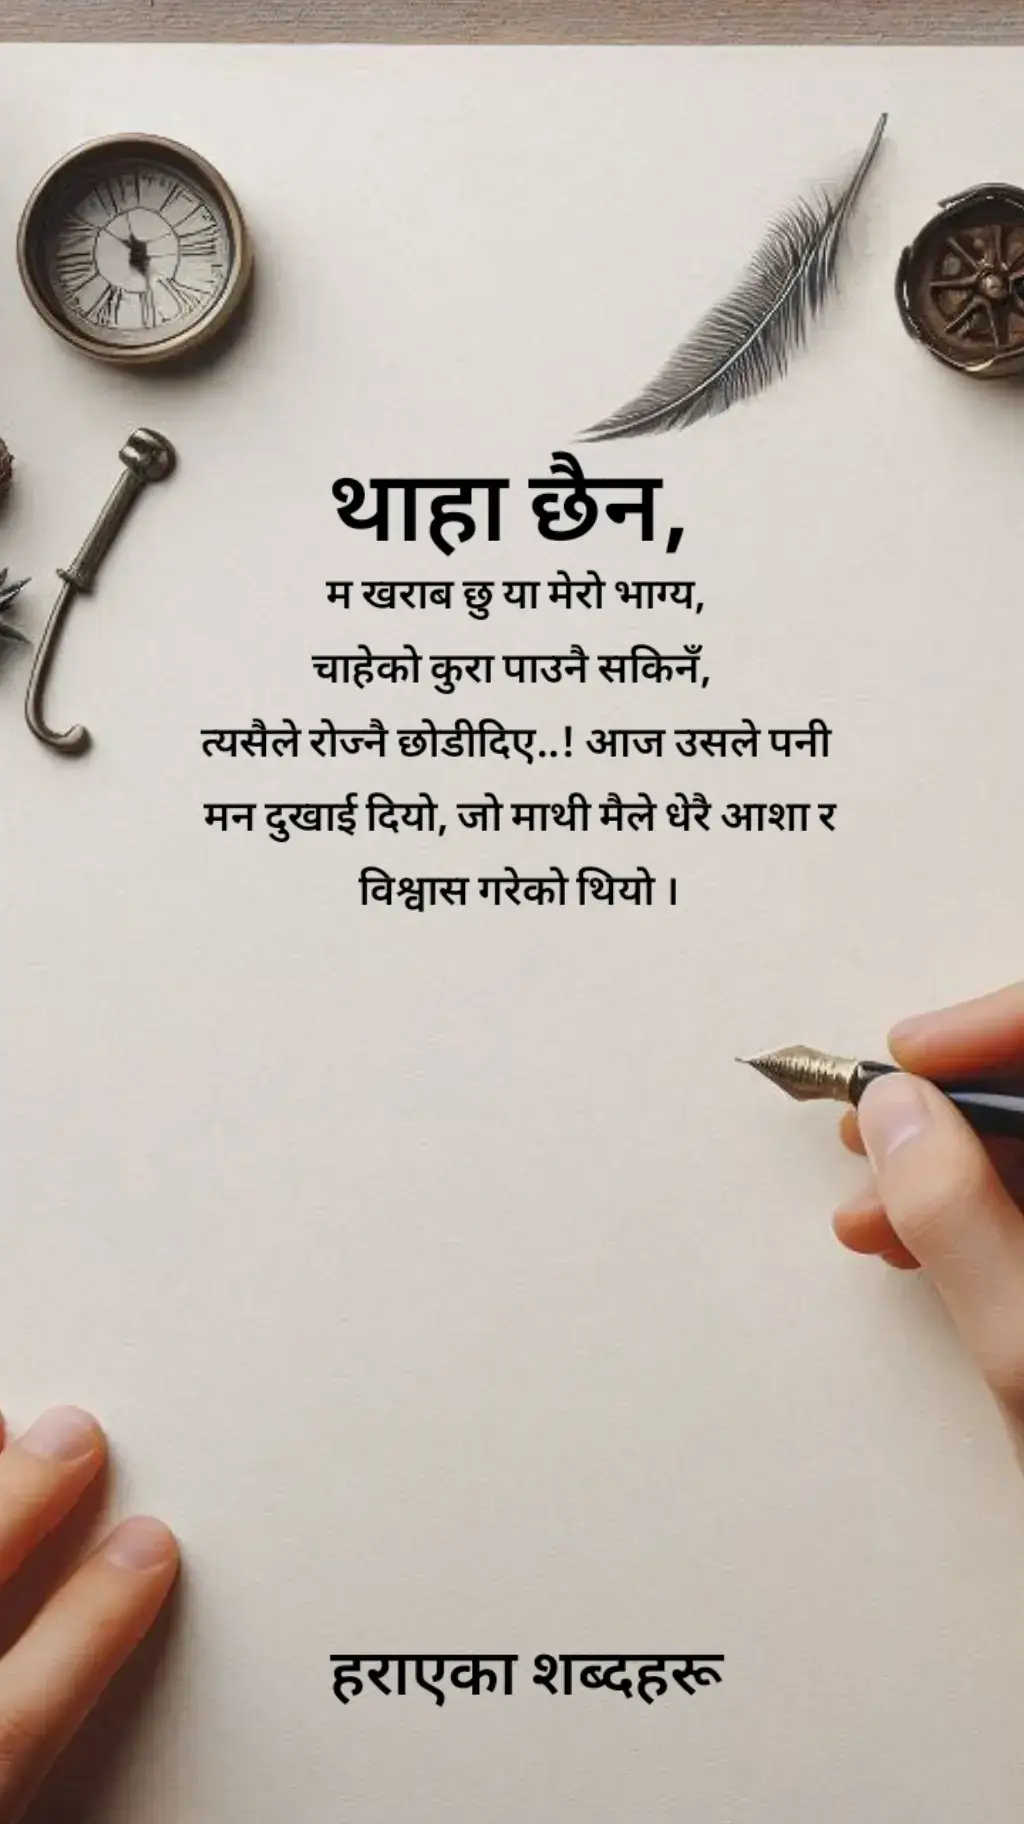 थाहा छैन,
म खराब छु या मेरो भाग्य,
चाहेको कुरा पाउनै सकिनँ,
त्यसैले रोज्नै छोडीदिए..! आज उसले पनी
मन दुखाई दियो, जो माथी मैले धेरै आशा र
विश्वास गरेको थियो ।
हराएका शब्दहरू